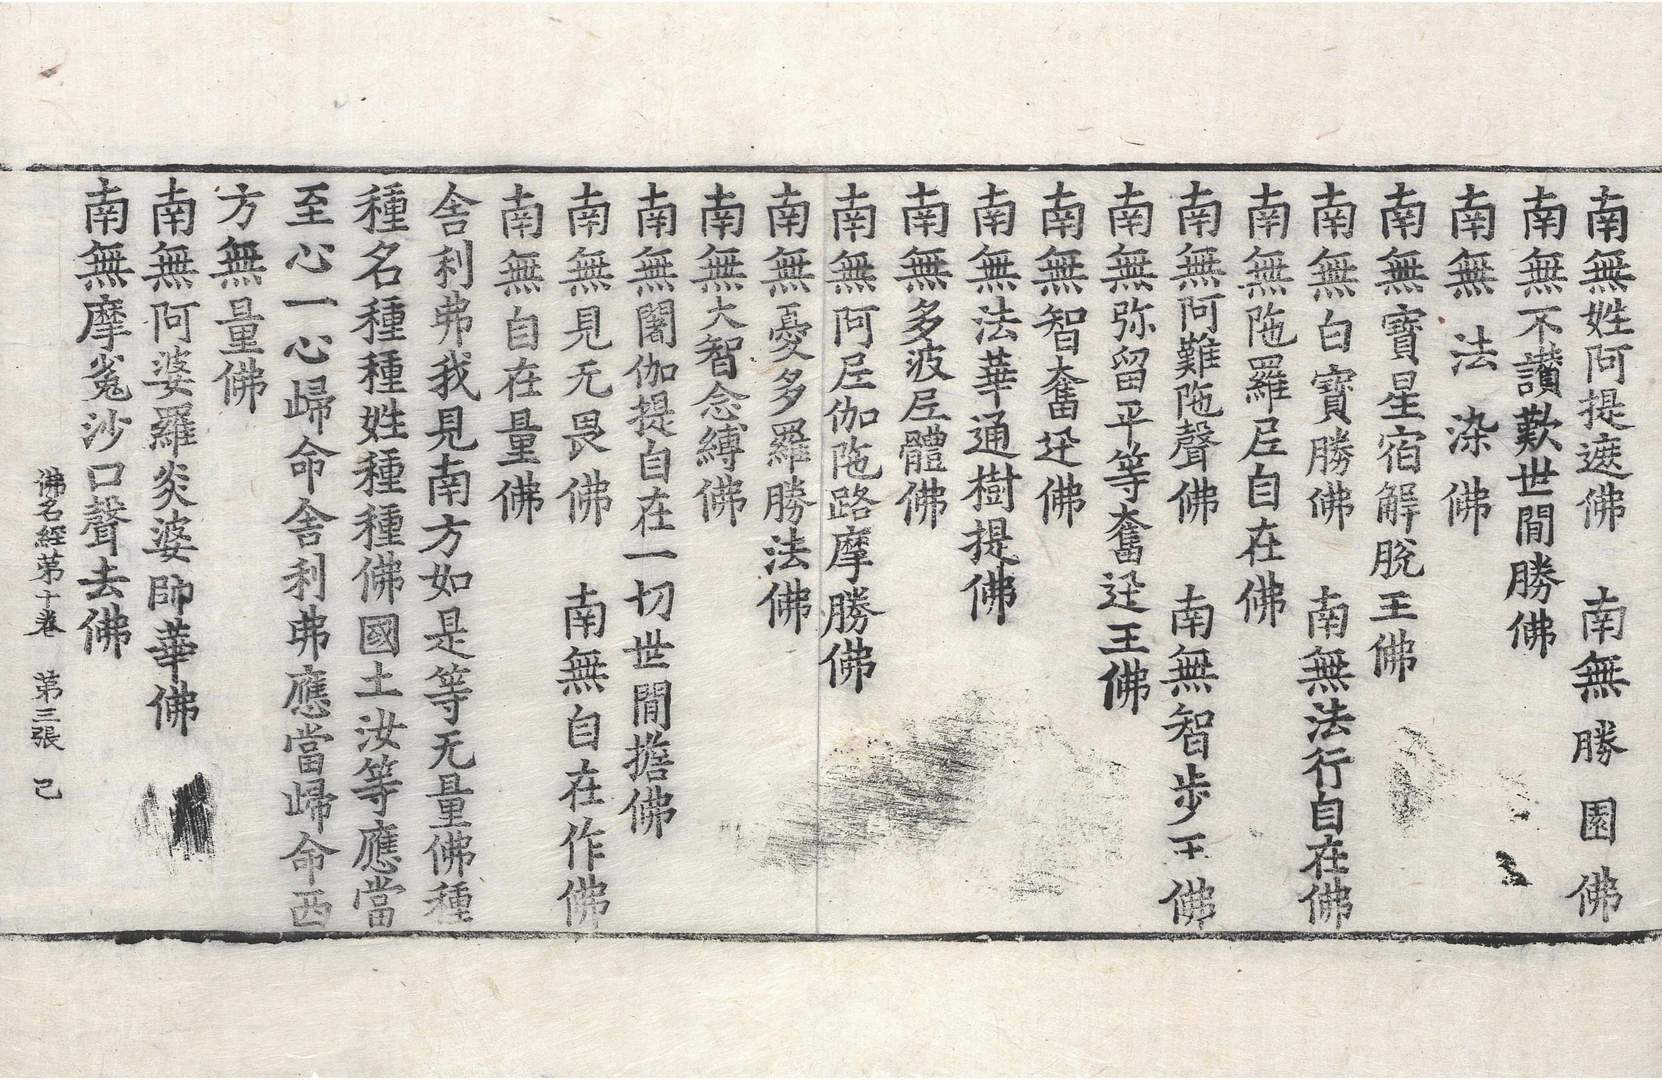 南無姓阿提遮佛　南無勝園佛
南無不讚歎世間勝佛
南無法染佛
南無寶星宿解脫王佛
南無白寶勝佛　南無法行自在佛
南無陁羅𡰱自在佛
南無阿難陁聲佛　南無智步王佛
南無弥留平等奮迅王佛
南無智奮迅佛
南無法華通樹提佛
南無多波𡰱體佛
南無阿𡰱伽陁路摩勝佛
南無憂多羅勝法佛
南無大智念縛佛
南無闍伽提自在一切世間擔佛
南無見无畏佛　南無自在作佛
南無自在量佛
舍利弗我見南方如是等无量佛種
種名種種姓種種佛國土汝等應當
至心一心歸命舍利弗應當歸命西
方無量佛
南無阿婆羅炎婆師華佛
南無摩㝹沙口聲去佛
佛名經苐十卷　苐三張　己